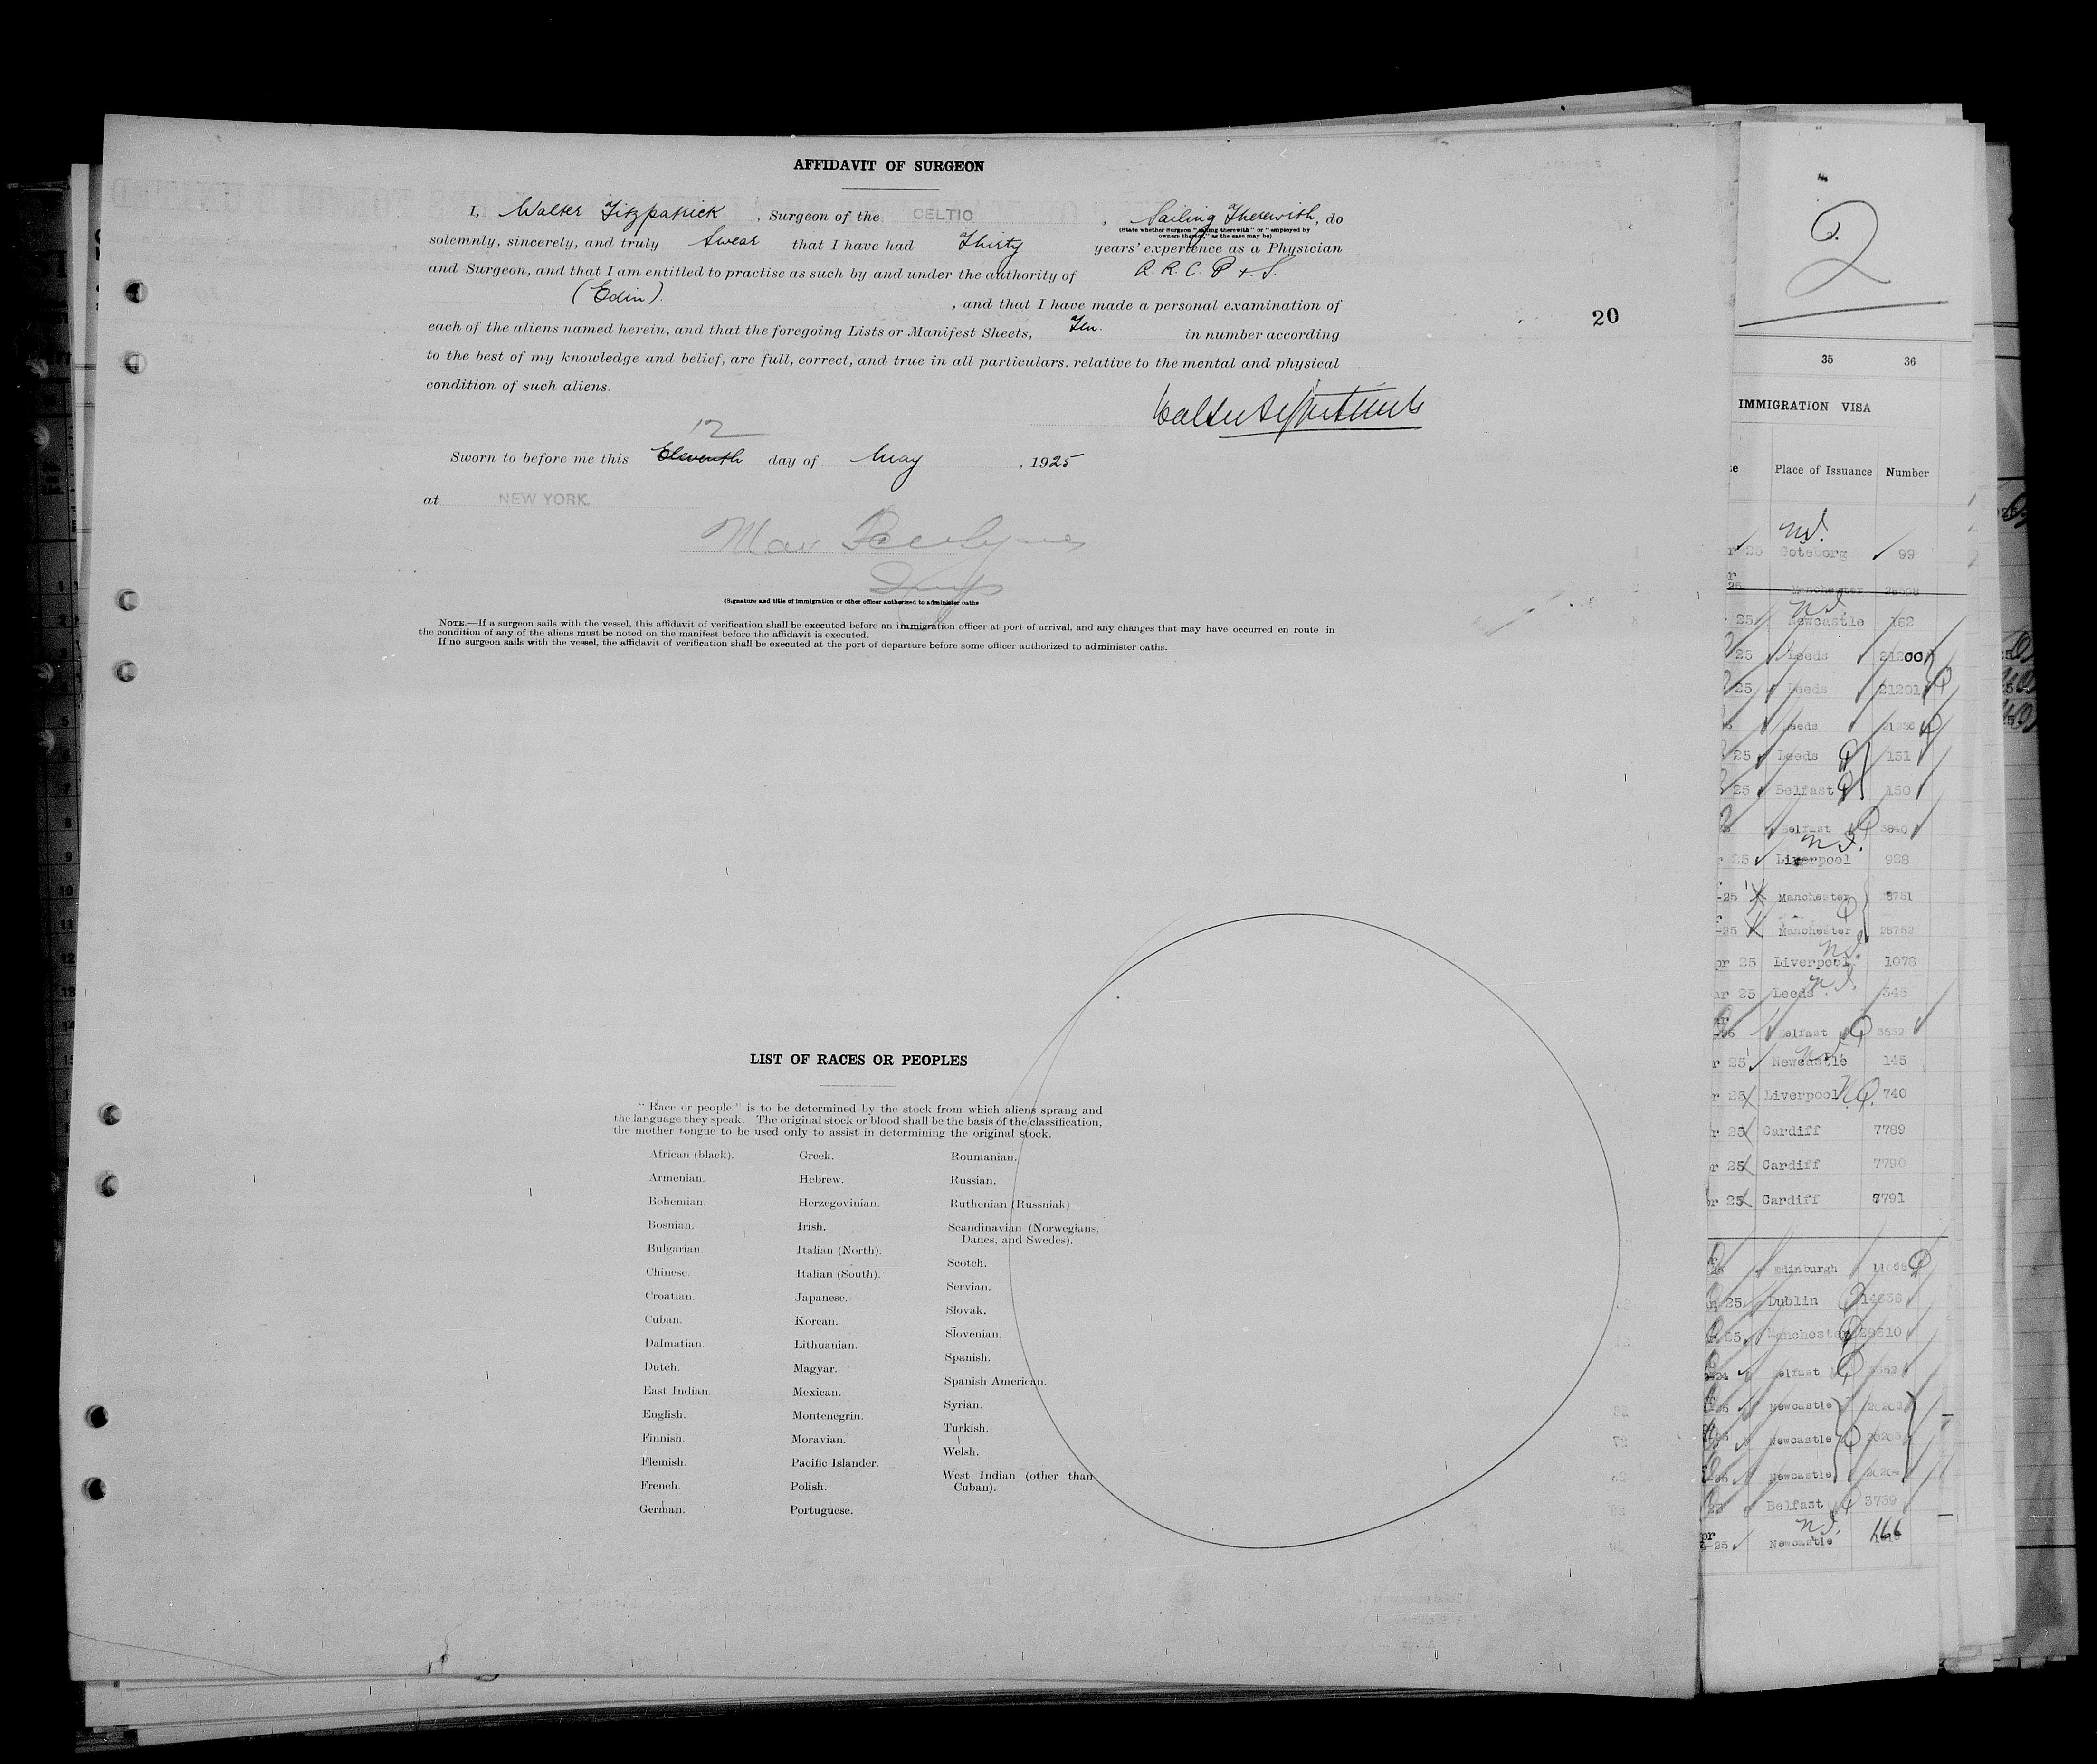 AFFIDAVIT OF SURGEON
I, Walter Fitzpatrick, Surgeon of the CELTIC, Sailing Therewith, do
(State whether Surgeon "sailing therewith" or "employed by
owners thereof," as the case may be)
solemnly, sincerely, and truly swear that I have had Thirty years' experience as a Physician
and Surgeon, and that I am entitled to practise as such by and under the authority of R. R. C. P + S.
(Edin). , and that I have made a personal examination of
each of the aliens named herein, and that the foregoing Lists or Manifest Sheets, Ten. in number according
to the best of my knowledge and belief, are full, correct, and true in all particulars. relative to the mental and physical
condition of such aliens.
12
Sworn to before me this Eleventh day of May , 1925
at NEW YORK.
(Signature and title of immigration or other officer authorized to administer oaths
NOTE.—If a surgeon sails with the vessel, this affidavit of verification shall be executed before an immigration officer at port of arrival, and any changes that may have occurred en route in
the condition of any of the aliens must be noted on the manifest before the affidavit is executed.
If no surgeon sails with the vessel, the affidavit of verification shall be executed at the port of departure before some officer authorized to administer oaths.
20
LIST OF RACES OR PEOPLES
"Race or people" is to be determined by the stock from which aliens sprang and
the language they speak. The original stock or blood shall be the basis of the classification,
the mother tongue to be used only to assist in determining the original stock.
African (black).
Armenian.
Bohemian.
Bosnian.
Bulgarian.
Chinese.
Croatian.
Cuban.
Dalmatian.
Dutch.
East Indian.
English.
Finnish.
Flemish.
French.
German.
Greek.
Hebrew.
Herzegovinian.
Irish.
Italian (North).
Italian (South).
Japanese.
Korean.
Lithuanian.
Magyar.
Mexican.
Montenegrin.
Moravian.
Pacific Islander.
Polish.
Portuguese.
Roumanian.
Russian.
Ruthenian (Russniak)
Scandinavian (Norwegians,
Danes, and Swedes).
Scotch.
Servian.
Slovak.
Slovenian.
Spanish.
Spanish American.
Syrian.
Turkish.
Welsh.
West Indian (other than
Cuban).
2
35 36
IMMIGRATION VISA
Place of Issuance Number
25 Goteborg 99
25 Manchester
25 Newcastle 162
25 Leeds 21200
25 Leeds 21201
Leeds
25 Leeds 151
25 Belfast 150
Belfast 3840
25 Liverpool 928
-25 Manchester 8751
-25 Manchester 28752
pr 25 Liverpool 1078
ar 25 Leeds 345
Belfast
r 25 Newcastle 145
r 25 Liverpool 740
r 25 Cardiff 7789
r 25 Cardiff 7790
r 25 Cardiff 7791
Edinburgh
25 Dublin
25 Manchester
Belfast
Newcastle
Newcastle
Newcastle
Belfast 3759
-25 Newcastle 166